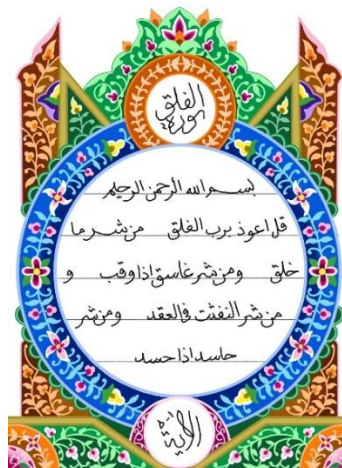 الفلق
سورة
بسم الله الرحمن الرحيم
قل اعوذ برب الفلق من شر ما
خلق ومن شر غاسق اذا وقب و
من شر النفثت في العقد ومن شر
حاسد اذا حسد
الاية